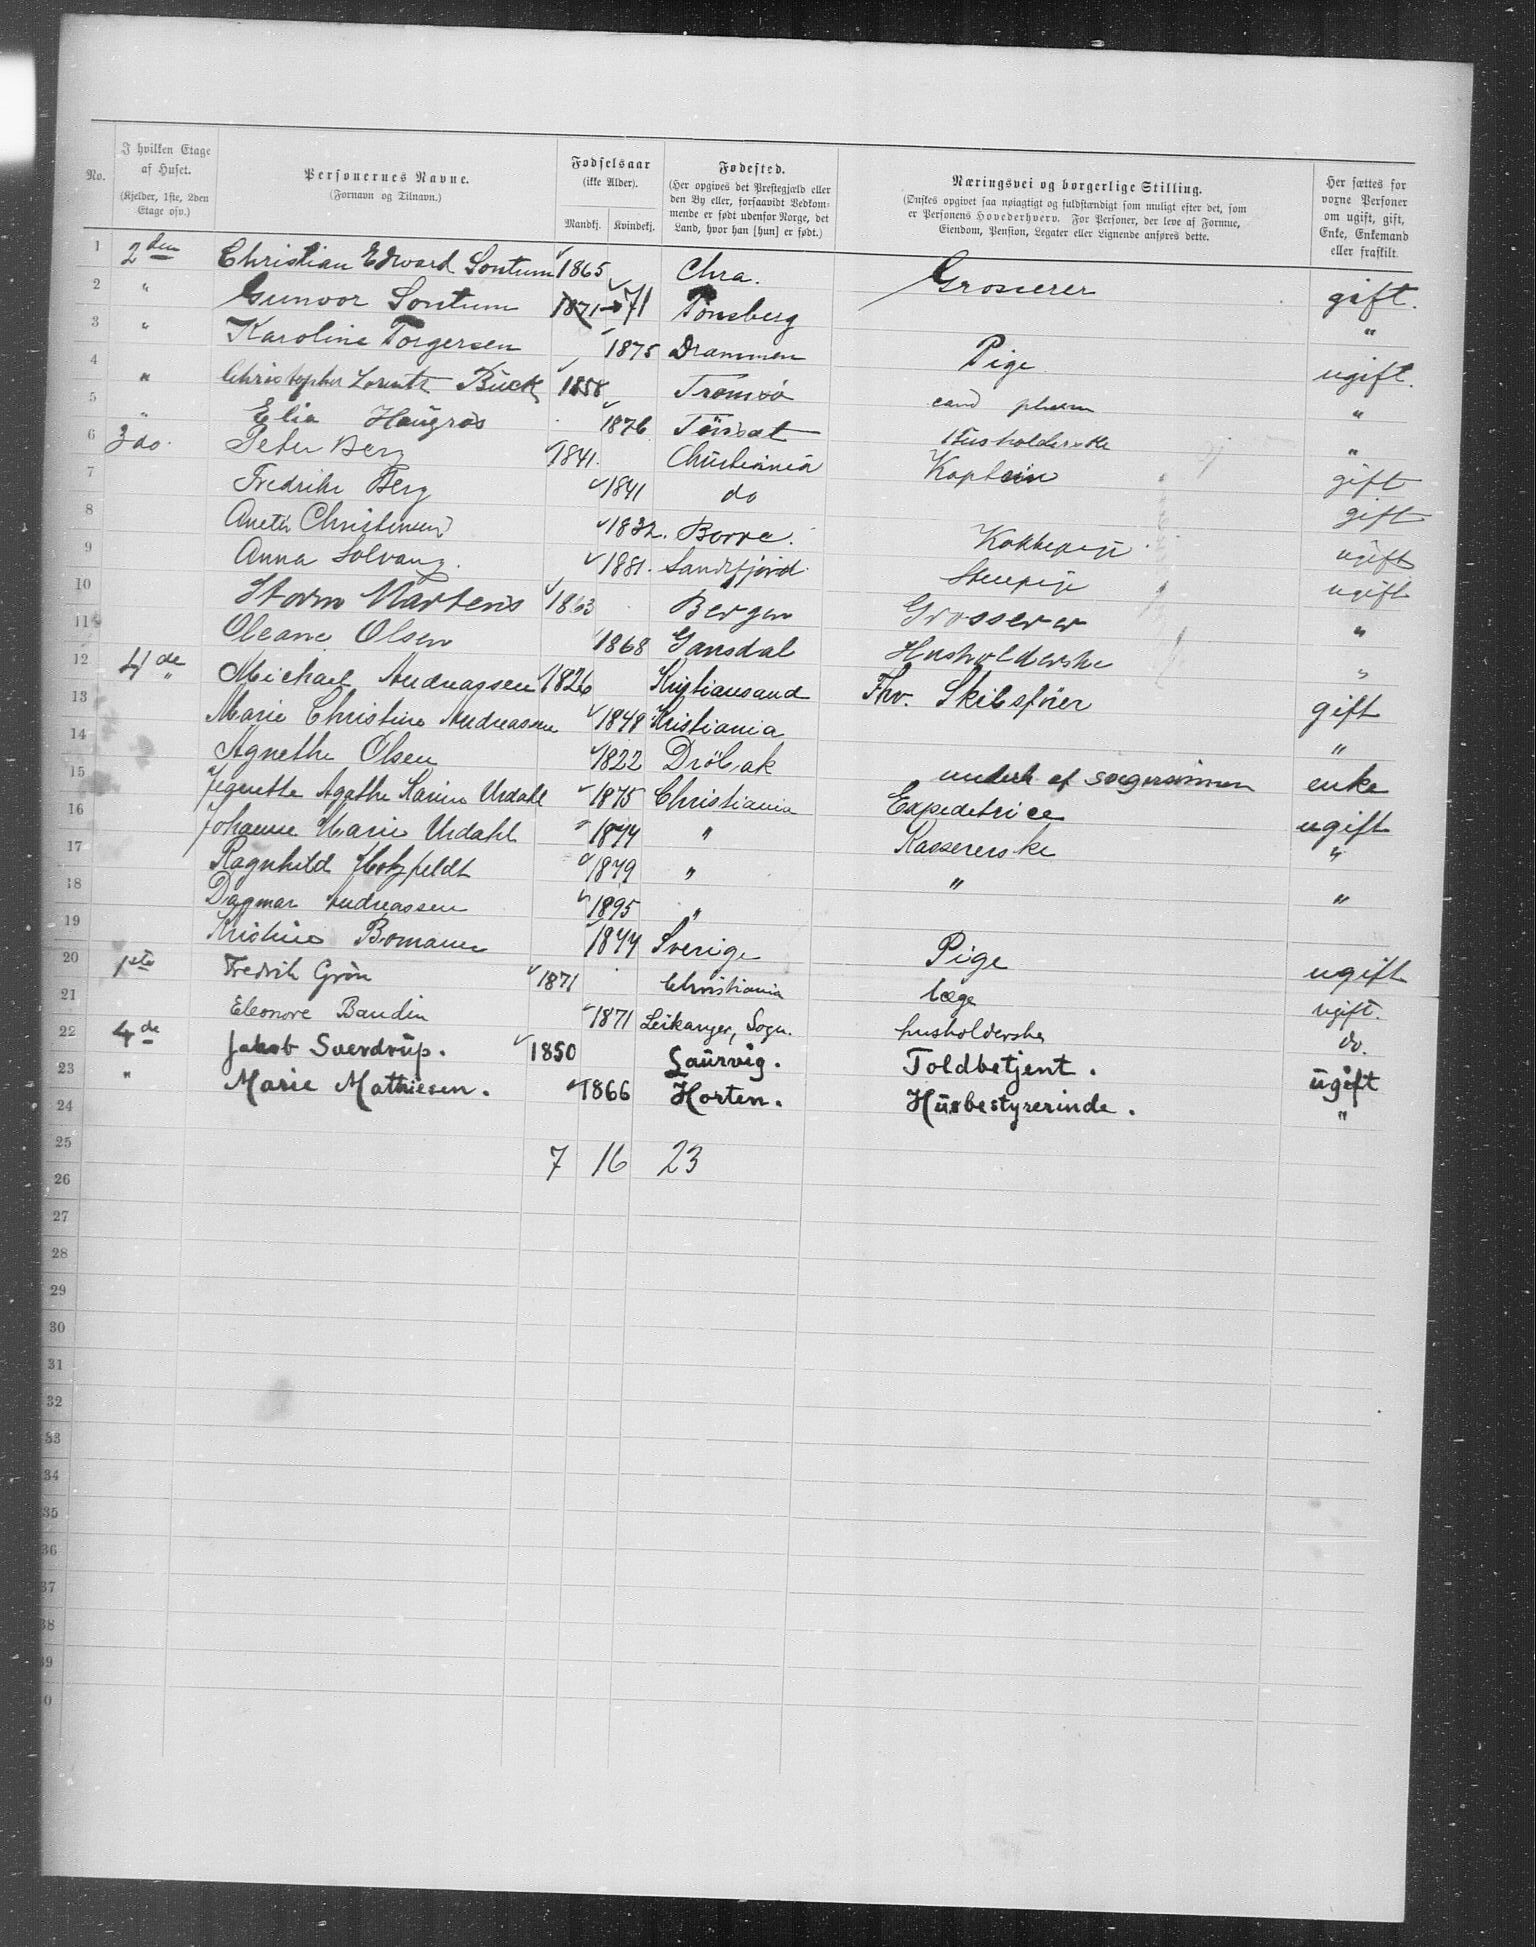 No. I hvilken Etage af Huset. (Kjelder, 1ste, 2den Etage osv.) Personernes Navne. (Fornavn og Tilnavn.) Fødselsaar (ikke Alder). Mandkj. Kvindekj. Fødested. (Her opgives det Præstegjæld eller den By eller, forsaavidt Vedkommende er født udenfor Norge, det Land, hvor han [hun] er født.) Næringsvei og borgerlige Stilling. (Ønskes opgivet saa nøiagtigt og fuldstændigt som muligt efter det, som er Personens Hovederhverv. For Personer, der leve af Formue, Eiendom, Pension, Legater eller Lignende anføres dette. Her sættes for voxne Personer om ugift, gift, Enke, Enkemand eller fraskilt.
1 2den Christian Edward Sontum 1865 Chra. Grosserer gift.
2 " Gunvor Sontum 1871 71 Tønsberg "
3 " Karoline Torgersen 1875 Drammen Pige ugift.
4 " Christopher Lorentz Buck 1858 Tromsø cand pharm "
5 " Elia Haugros 1876 Tönset Husholderske "
6 3do. Peter Berg 1841. Christiania Kaptein gift
7 Fredrike Berg 1841 do gift
8 Anette Christensen 1832. Borre. Kokkepige ugift
9 Anna Solvang. 1881. Sandefjord. Stuepige ugift
10 Storm Martens 1863 Bergen Grosserer "
11 Oleane Olsen 1868 Gansdal Husholderske "
12 4de " Michael Andreassen 1826 Kristiansand Fhv. Skibsfører gift
13 Marie Christine Andreassen 1848 Kristiania "
14 Agnethe Olsen 1822 Dröbak underh af svigersønnen enke
15 Agathe Karine Urdahl 1875 Christiania Expeditrice ugift
16 Johanne Marie Urdahl 1877 " Kassererske "
17 Ragnhild Hotzfeldt 1879 " " "
18 Dagmar Andreassen 1895 "
19 Kristine Bomann 1877 Sverige Pige ugift
20 1ste Fredrik Grøn 1871 Christiania læge ugift.
21 Eleonore Baudin 1871 Leikanger, Sogn. husholderske do.
22 4de Jakob Sverdrup. 1850 Laurvig. Toldbetjent. ugift
23 " Marie Mathiesen. 1866 Horten. Husbestyrerinde. "
24
25 7 16 23
26
27
28
29
30
31
32
33
34
35
36
37
38
39
0